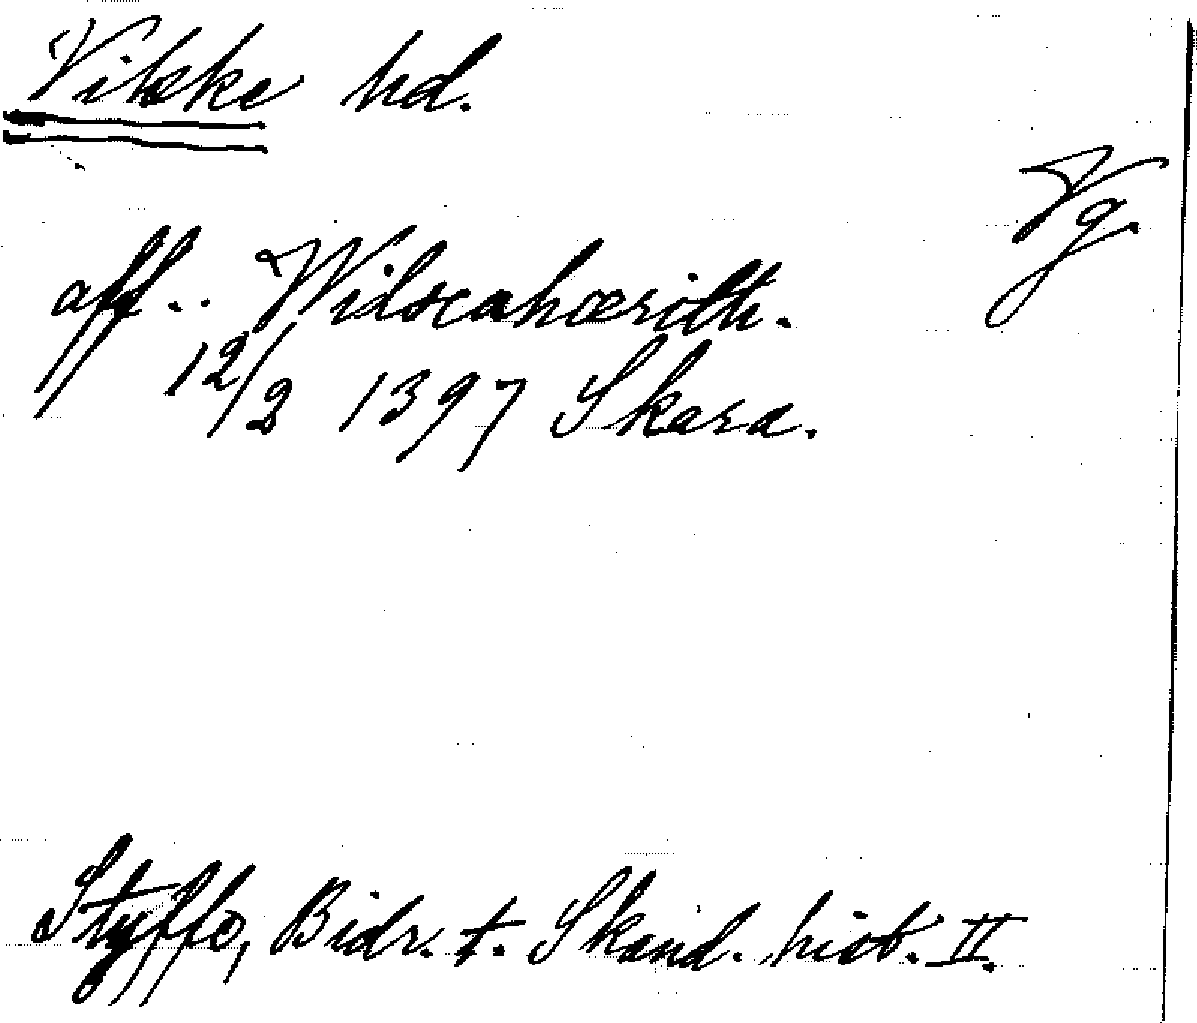 Vilske hd.
Vg.
aff.. Wilscahærith.
12/2 1397 Skara.
Styffe, Bidr. t. Skand. hist. II.